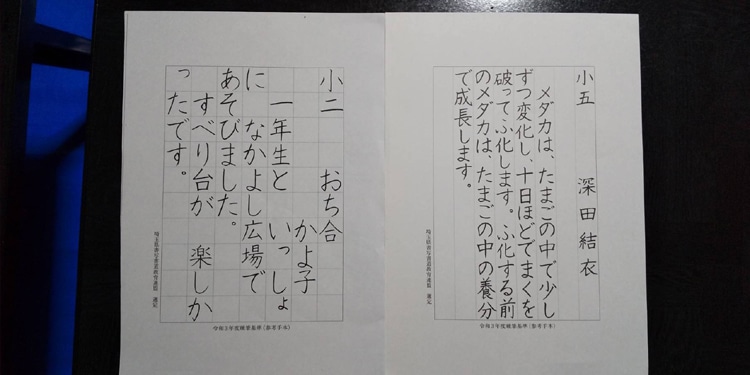 小五 深田結衣
メダカは、たまごの中で少し
ずつ変化し、十日ほどでまくを
破ってふ化します。ふ化する前
のメダカは、たまごの中の養分
で成長します。
埼玉県書写書道教育連盟 選定
令和3年度硬筆基準(参考手本)
小二 おち合
かよ子
一年生と いっしょ
に なかよし広場で
あそびました。
すべり台が 楽しか
ったです。
埼玉県書写書道教育連盟 選定
令和3年度硬筆基準(参考手本)